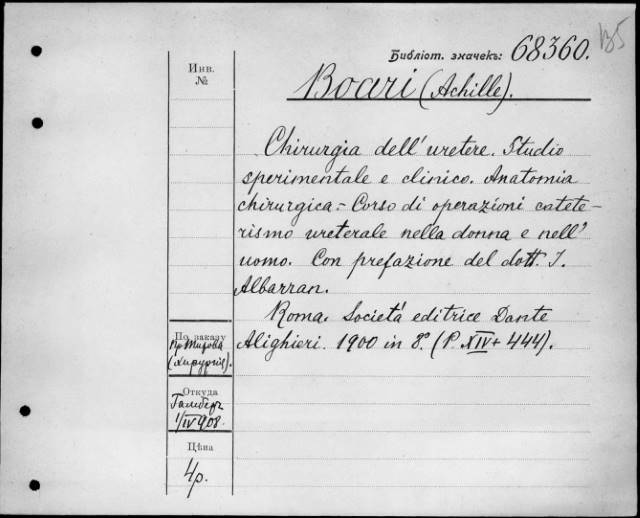 Библіот. значекъ: 68360.
B5
Инв.
№
Boari (Achille).
Chirurgia dell' uretere. Studio
sperimentale e clinico. Anatomia
chirurgica.- Corso di operazioni catete-
rismo ureterale nella donna e nell'
uomo. Con prefazione del dott. J.
Albarran.
Roma. Società editrice Dante
Alighieri. 1900 in 8º. (P. XIV + 444).
По заказу
(хирургія).
Откуда
1/IV 908.
Цѣна
4р.